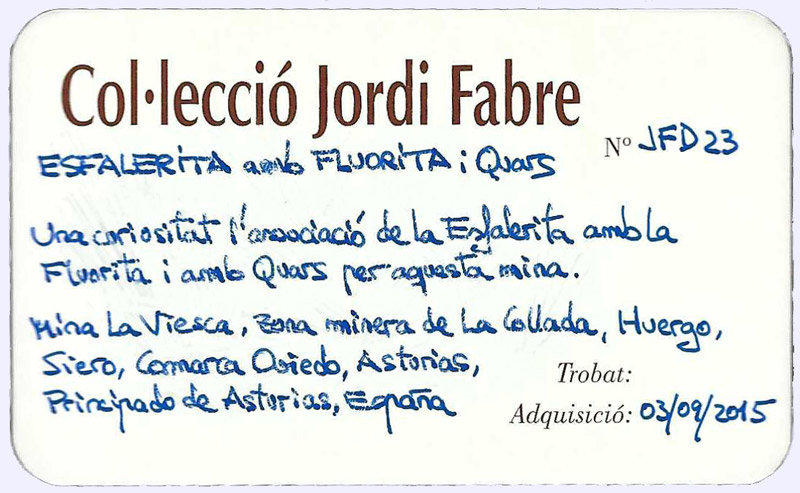 Col·lecció Jordi Fabre
Nº JFD23
ESFALERITA amb FLUORITA i Quars
Una curiositat l'associació de la Esfalerita amb la
Fluorita i amb Quars per aquesta mina.
Mina La Viesca, zona minera de La Collada, Huergo,
Siero, Comarca Oviedo, Asturias,
Principado de Asturias, España
Trobat:
Adquisició: 03/09/2015